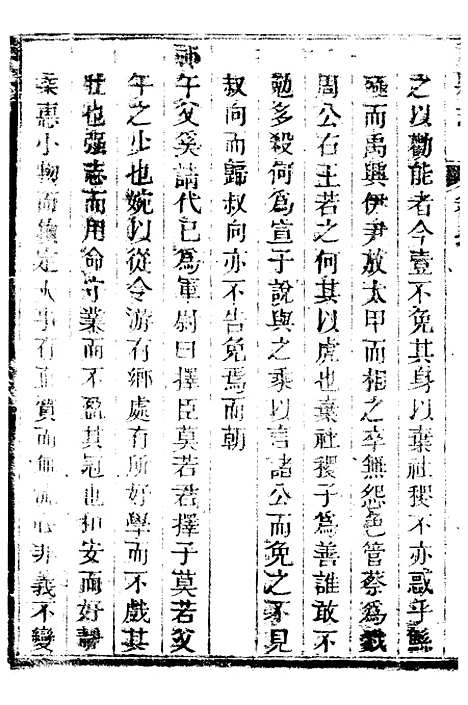 之以勸能者今壹不免其身以棄社稷不亦惑乎鯀
殛而禹興伊尹放太甲而相之卒無怨色管蔡爲戮
周公右王若之何其以虎也棄社稷子爲善誰敢不
勉多殺何爲宣子說與之乘以言諸公而免之不見
叔向而歸叔向亦不告免焉而朝
祁午父奚請代已爲軍尉曰擇臣莫若君擇子莫若父
午之少也婉以從令游有鄉處有所好學而不戲其
壯也强志而用命守業而不盈其冠也和安而好敬
柔惠小物而鎮定大事有直質而無流心非義不變